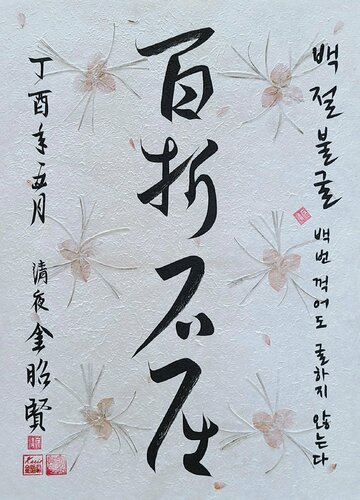 백절불굴 백번 꺾어도 굴하지 않는다
百折不屈
丁酉年五月
清夜 金昭賢